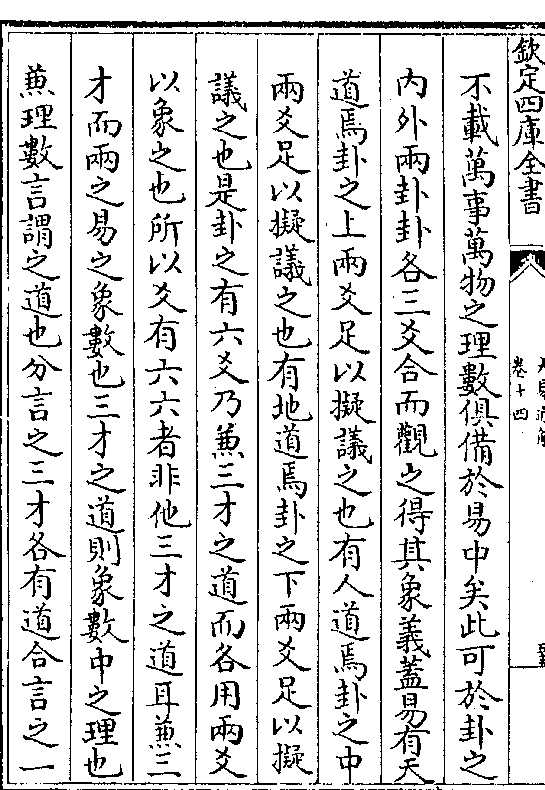 欽定四庫全書
卷十四
不載萬事萬物之理數俱備於易中矣此可於卦之
内外兩卦卦各三爻合而觀之得其象義蓋易有天
道焉卦之上兩爻足以擬議之也有人道焉卦之中
兩爻足以擬議之也有地道焉卦之下兩爻足以擬
議之也是卦之有六爻乃兼三才之道而各用兩爻
以象之也所以爻有六六者非他三才之道耳兼三
才而兩之易之象數也三才之道則象數中之理也
兼理數言謂之道也分言之三才各有道合言之一